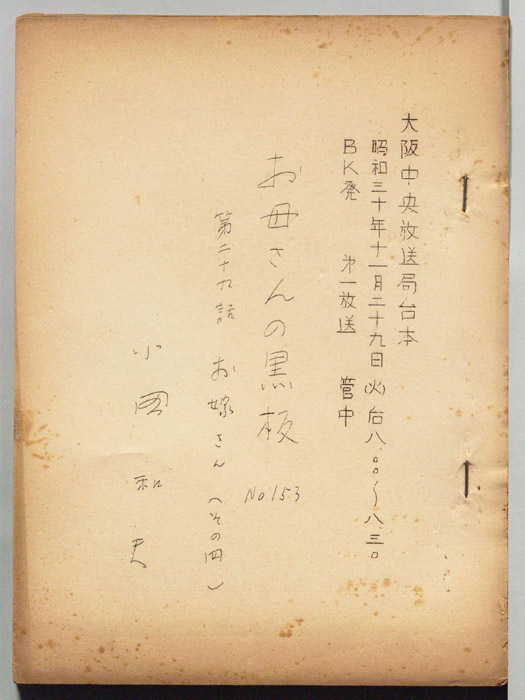 大阪中央放送局台本
昭和三十年十一月二十九日(火)后八.〇〇〜八.三〇
BK発 第一放送 管中
お母さんの黒板
No 153
第二十九話 お嫁さん(その四)
小国和夫